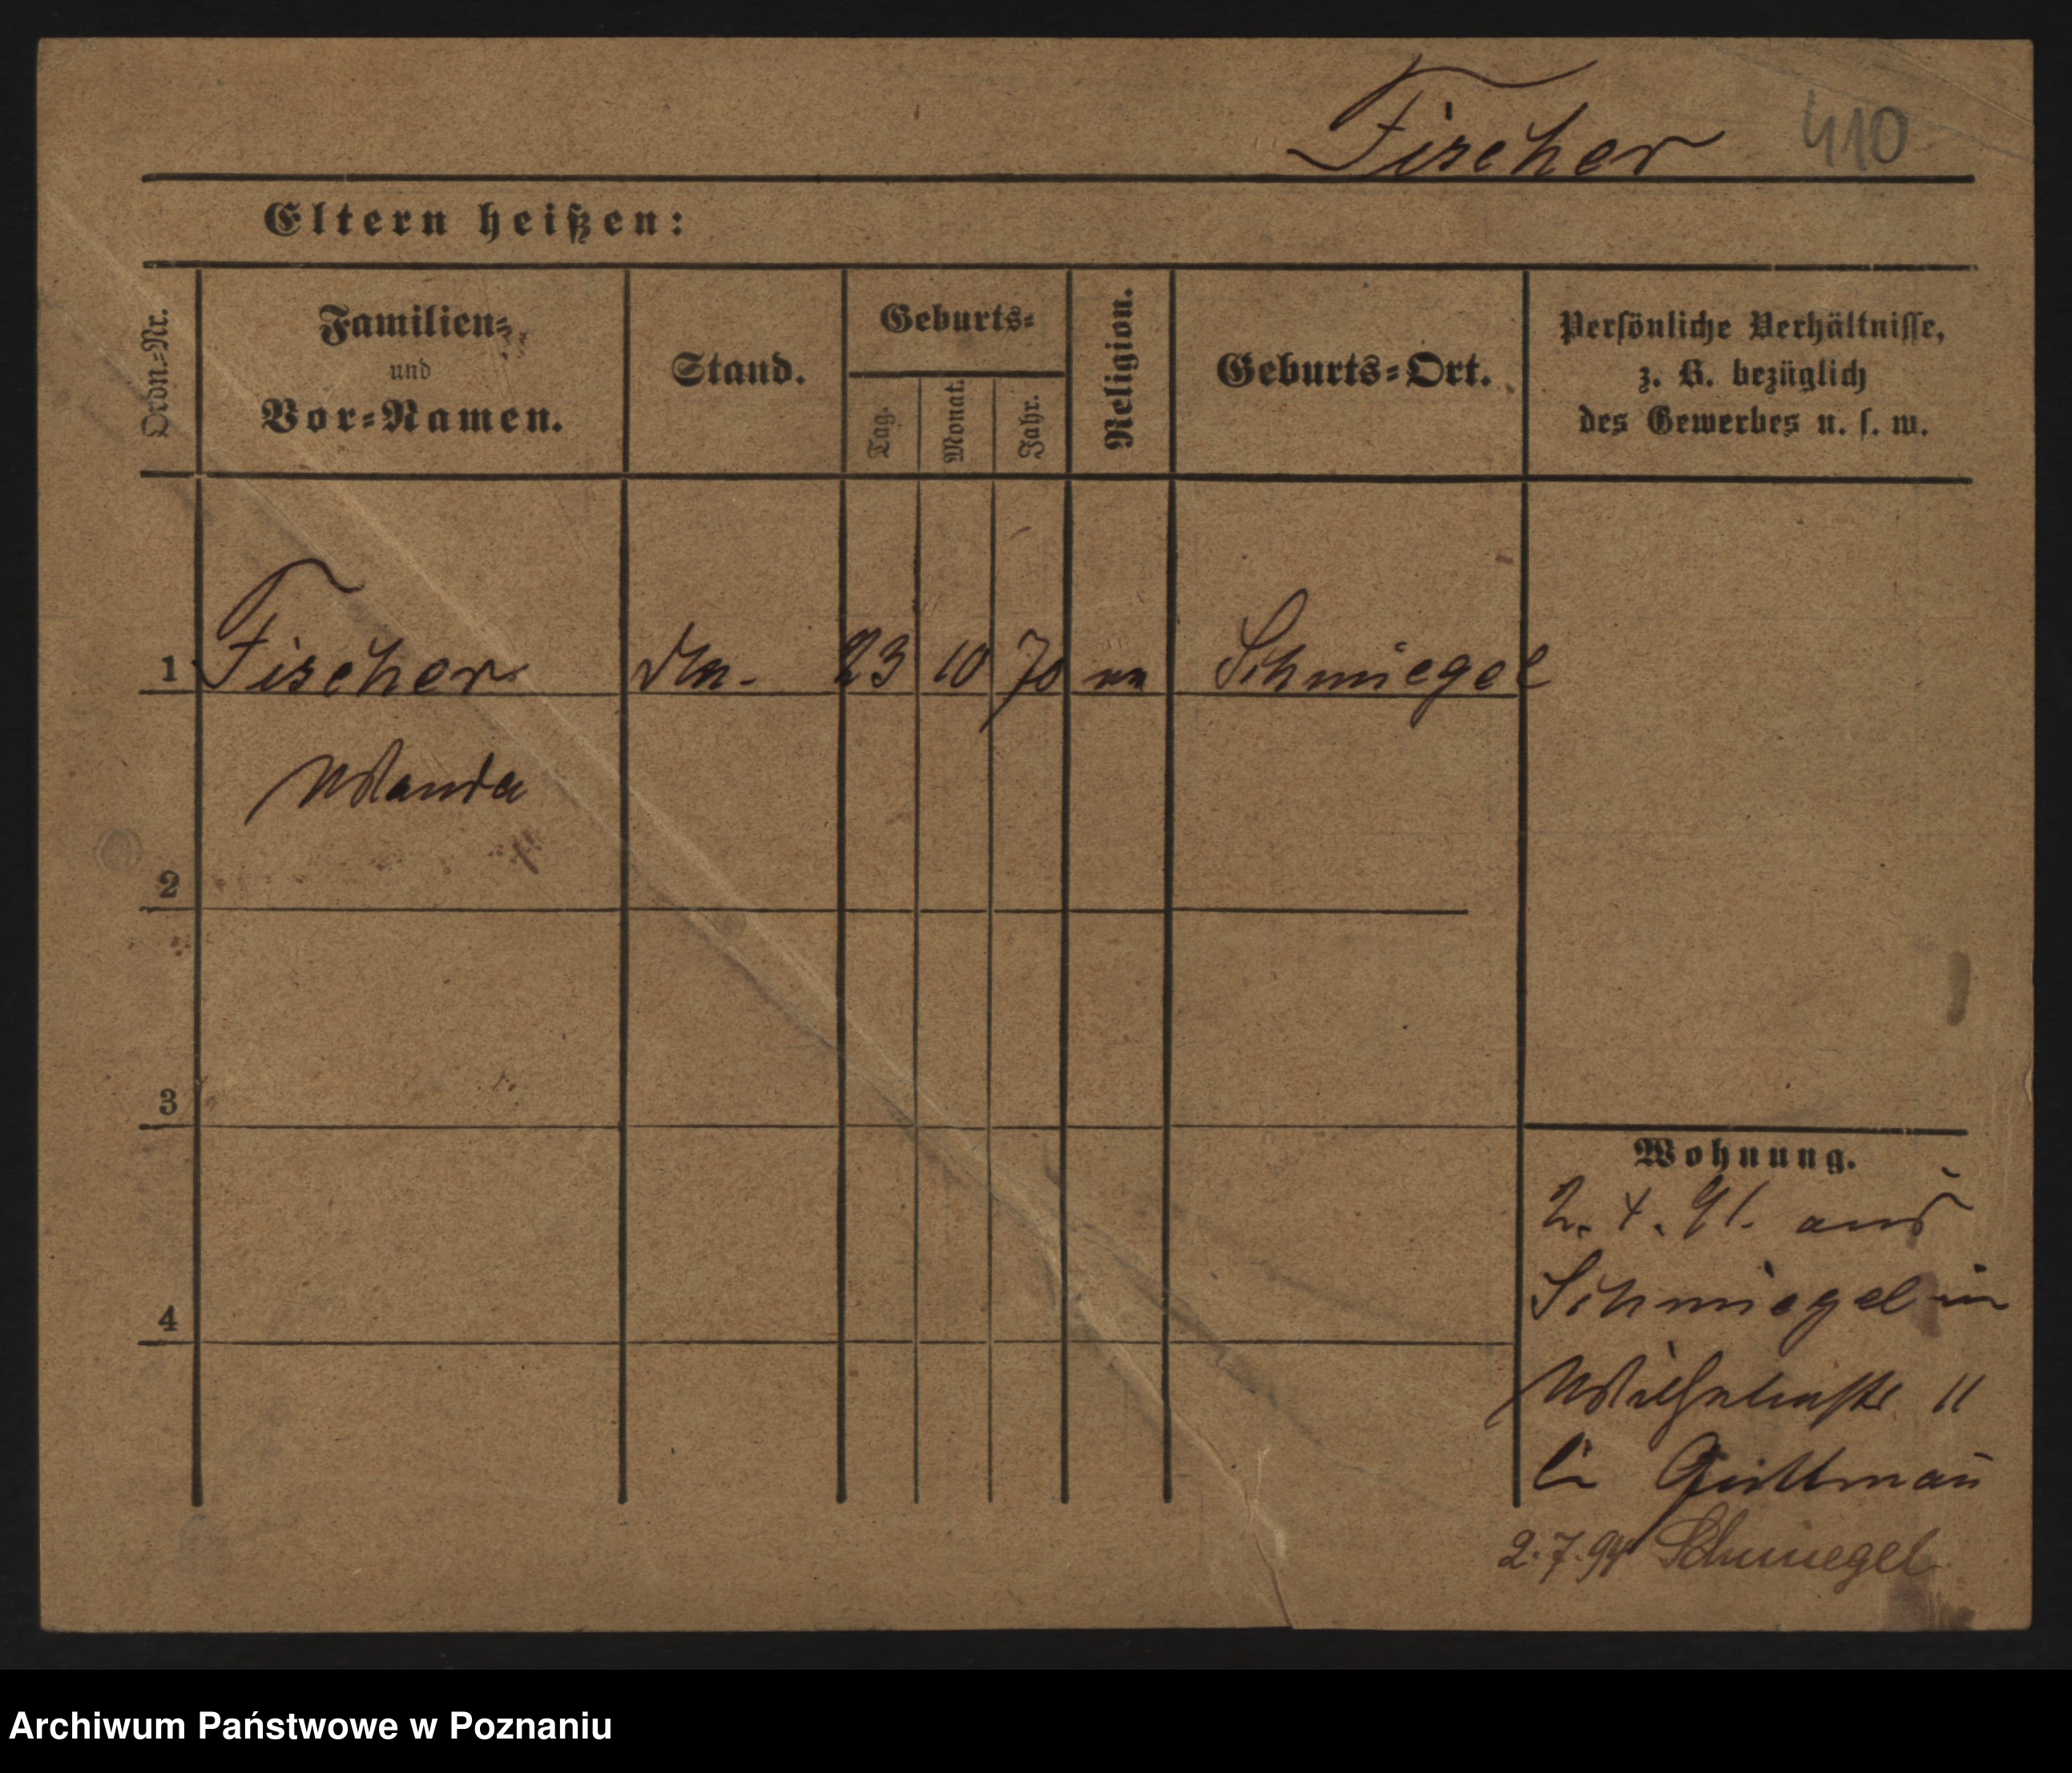 Fischer 410
Eltern heißen:
Ordn.=Nr.
Familien=
und
Vor=Namen.
Stand.
Geburts=
Tag.
Monat.
Jahr.
Religion.
Geburts=Ort.
Persönliche Verhältnisse,
z. B. bezüglich
des Gewerbes u. s. w.
1 Fischer 23 10 70 Schmiegel
Wanda
2
3
4
Wohnung.
2. 4. 91. aus
Schmiegel in
Wilhelmstr 11
2.7.94 Schmiegel
Archiwum Państwowe w Poznaniu